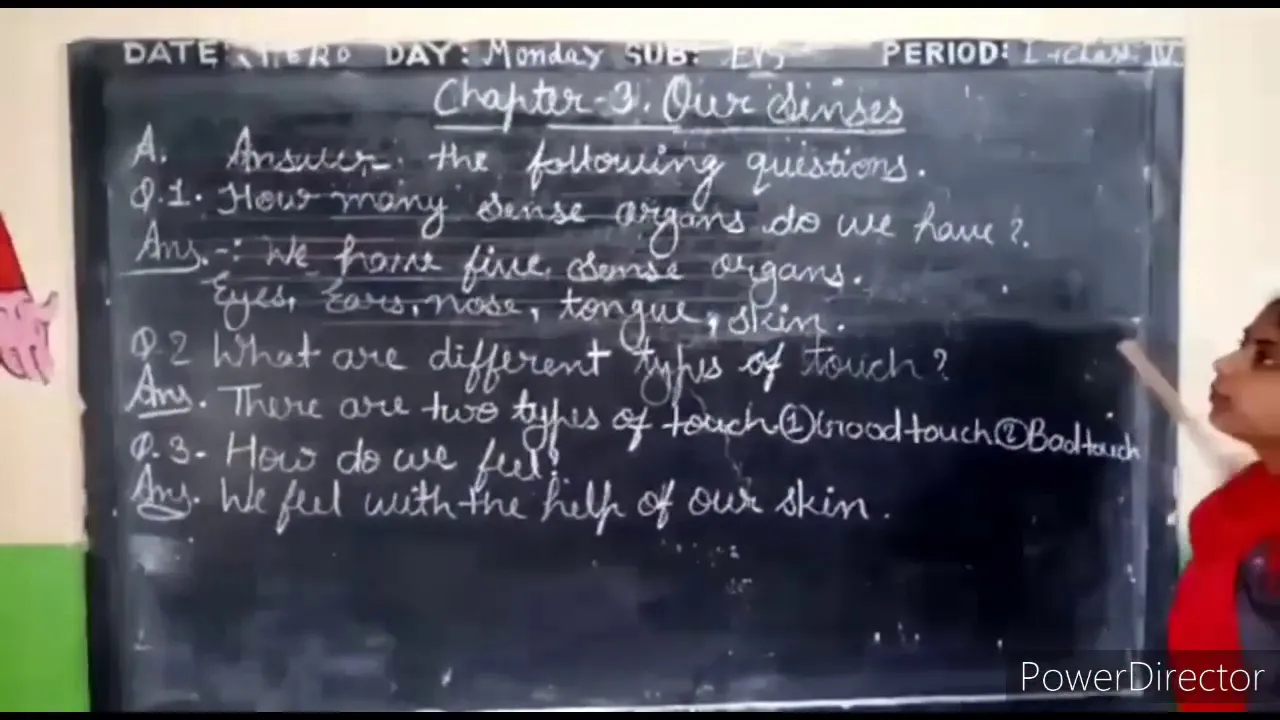 DATE: DAY: Monday SUB: EVS PERIOD: I Class-IV
Chapter-3. Our Senses
A. Answer the following questions.
Q.1. How many sense organs do we have?
Ans.-: We have five sense organs.
Eyes, Ears, nose, tongue, skin.
Q.2 What are different types of touch?
Ans. There are two types of touch ① Good touch ② Bad touch
Q.3- How do we feel?
Ans. We feel with the help of our skin.
PowerDirector